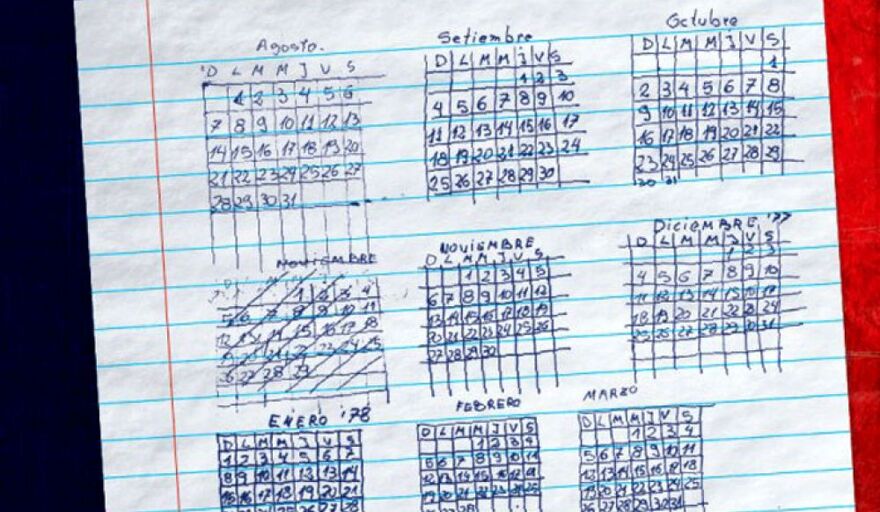 Agosto.
D L M M J V S
1 2 3 4 5 6
7 8 9 10 11 12 13
14 15 16 17 18 19 20
21 22 23 24 25 26 27
28 29 30 31
Setiembre
D L M M J V S
1 2 3
4 5 6 7 8 9 10
11 12 13 14 15 16 17
18 19 20 21 22 23 24
25 26 27 28 29 30
Octubre
D L M M J V S
1
2 3 4 5 6 7 8
9 10 11 12 13 14 15
16 17 18 19 20 21 22
23 24 25 26 27 28 29
30 31
NOVIEMBRE
1 2 3 4
5 6 7 8 9 10 11
12 13 14 15 16 17 18
19 20 21 22 23 24 25
26 27 28 29
NOVIEMBRE
D L M M J V S
1 2 3 4 5
6 7 8 9 10 11 12
13 14 15 16 17 18 19
20 21 22 23 24 25 26
27 28 29 30
DiciEMBRE '77
D L M M J V S
1 2 3
4 5 6 7 8 9 10
11 12 13 14 15 16 17
18 19 20 21 22 23 24
25 26 27 28 29 30 31
ENERO '78
D L M M J V S
1 2 3 4 5 6 7
8 9 10 11 12 13 14
15 16 17 18 19 20 21
24 25 26 27 28
FEBRERO
D L M M J V S
1 2 3 4
5 6 7 8 9 10 11
12 13 14 15 16 17 18
19 20 21 22 23 24 25
27 28
MARZO
D L M M J V S
1 2 3 4
5 6 7 8 9 10 11
12 13 14 15 16 17 18
19 20 21 22 23 24 25
26 27 28 29 30 31